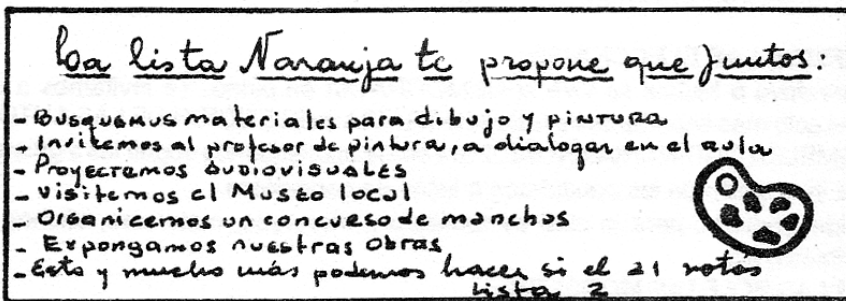 La lista Naranja te propone que juntos:
- Busquemus materiales para dibujo y pintura
- Invitemos al profesor de pintura, a dialogar en el aula
- Proyectemos Audiovisuales
- Visitemos el Museo local
- Organicemos un concurso de manchas
- Expongamos nuestras obras
- Esto y mucho más podemos hacer si el 21 votas
Lista 2